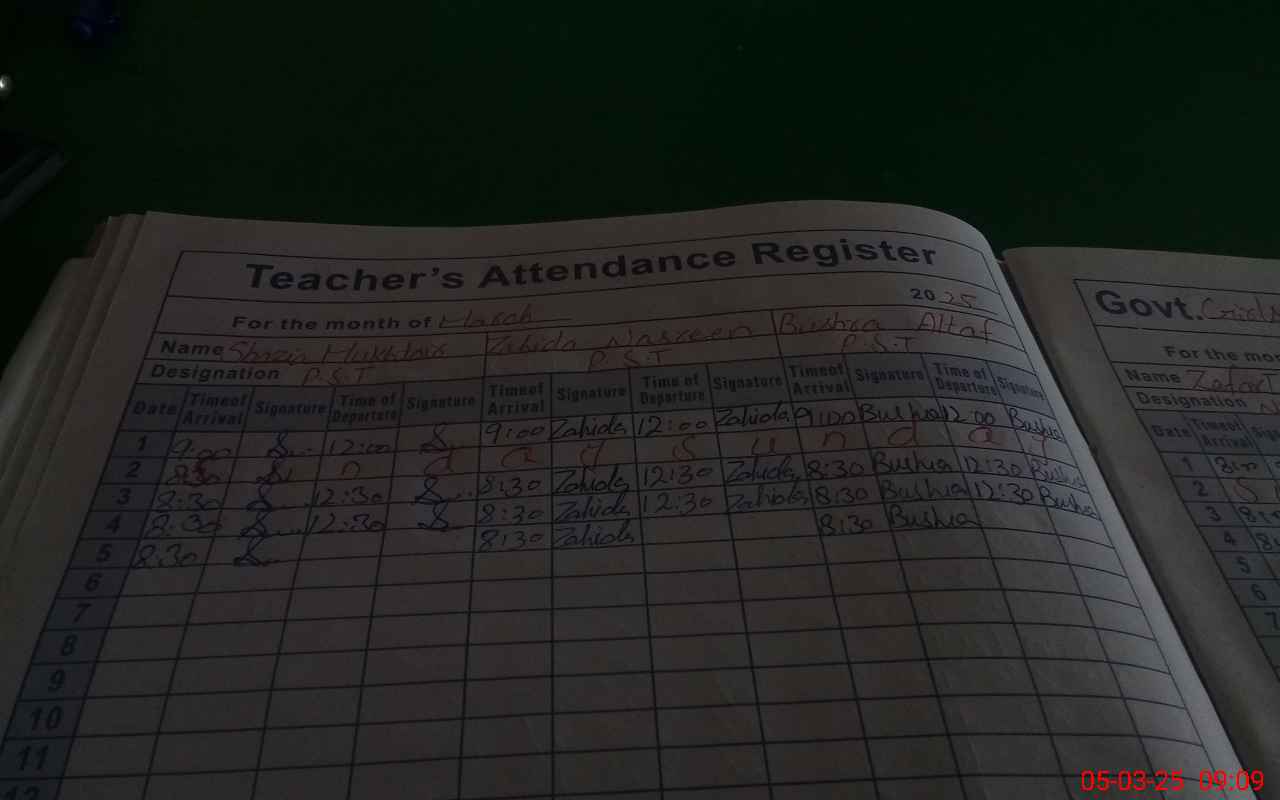 Teacher's Attendance Register
For the month of March 2025
Name Shazia Mukhtair Zahida Nasreen Bushra Altaf
Designation P.S.T P.S.T P.S.T
Date Time of Arrival Signature Time of Departure Signature Time of Arrival Signature Time of Departure Signature Time of Arrival Signature Time of Departure Signature
1 9:00 12:00 9:00 Zahida 12:00 Zahida 9:00 Bushra 12:00 Bushra
2 S u n d a y S u n d a y
3 8:30 12:30 8:30 Zahida 12:30 Zahida 8:30 Bushra 12:30 Bushra
4 8:30 12:30 8:30 Zahida 12:30 Zahida 8:30 Bushra 12:30 Bushra
5 8:30 8:30 Zahida 8:30 Bushra
6
7
8
9
10
11
12
Govt.
For the mon
Name
Designation
Date Time of Arrival
1
2 S
3
4
5
6
7
05-03-25 09:09